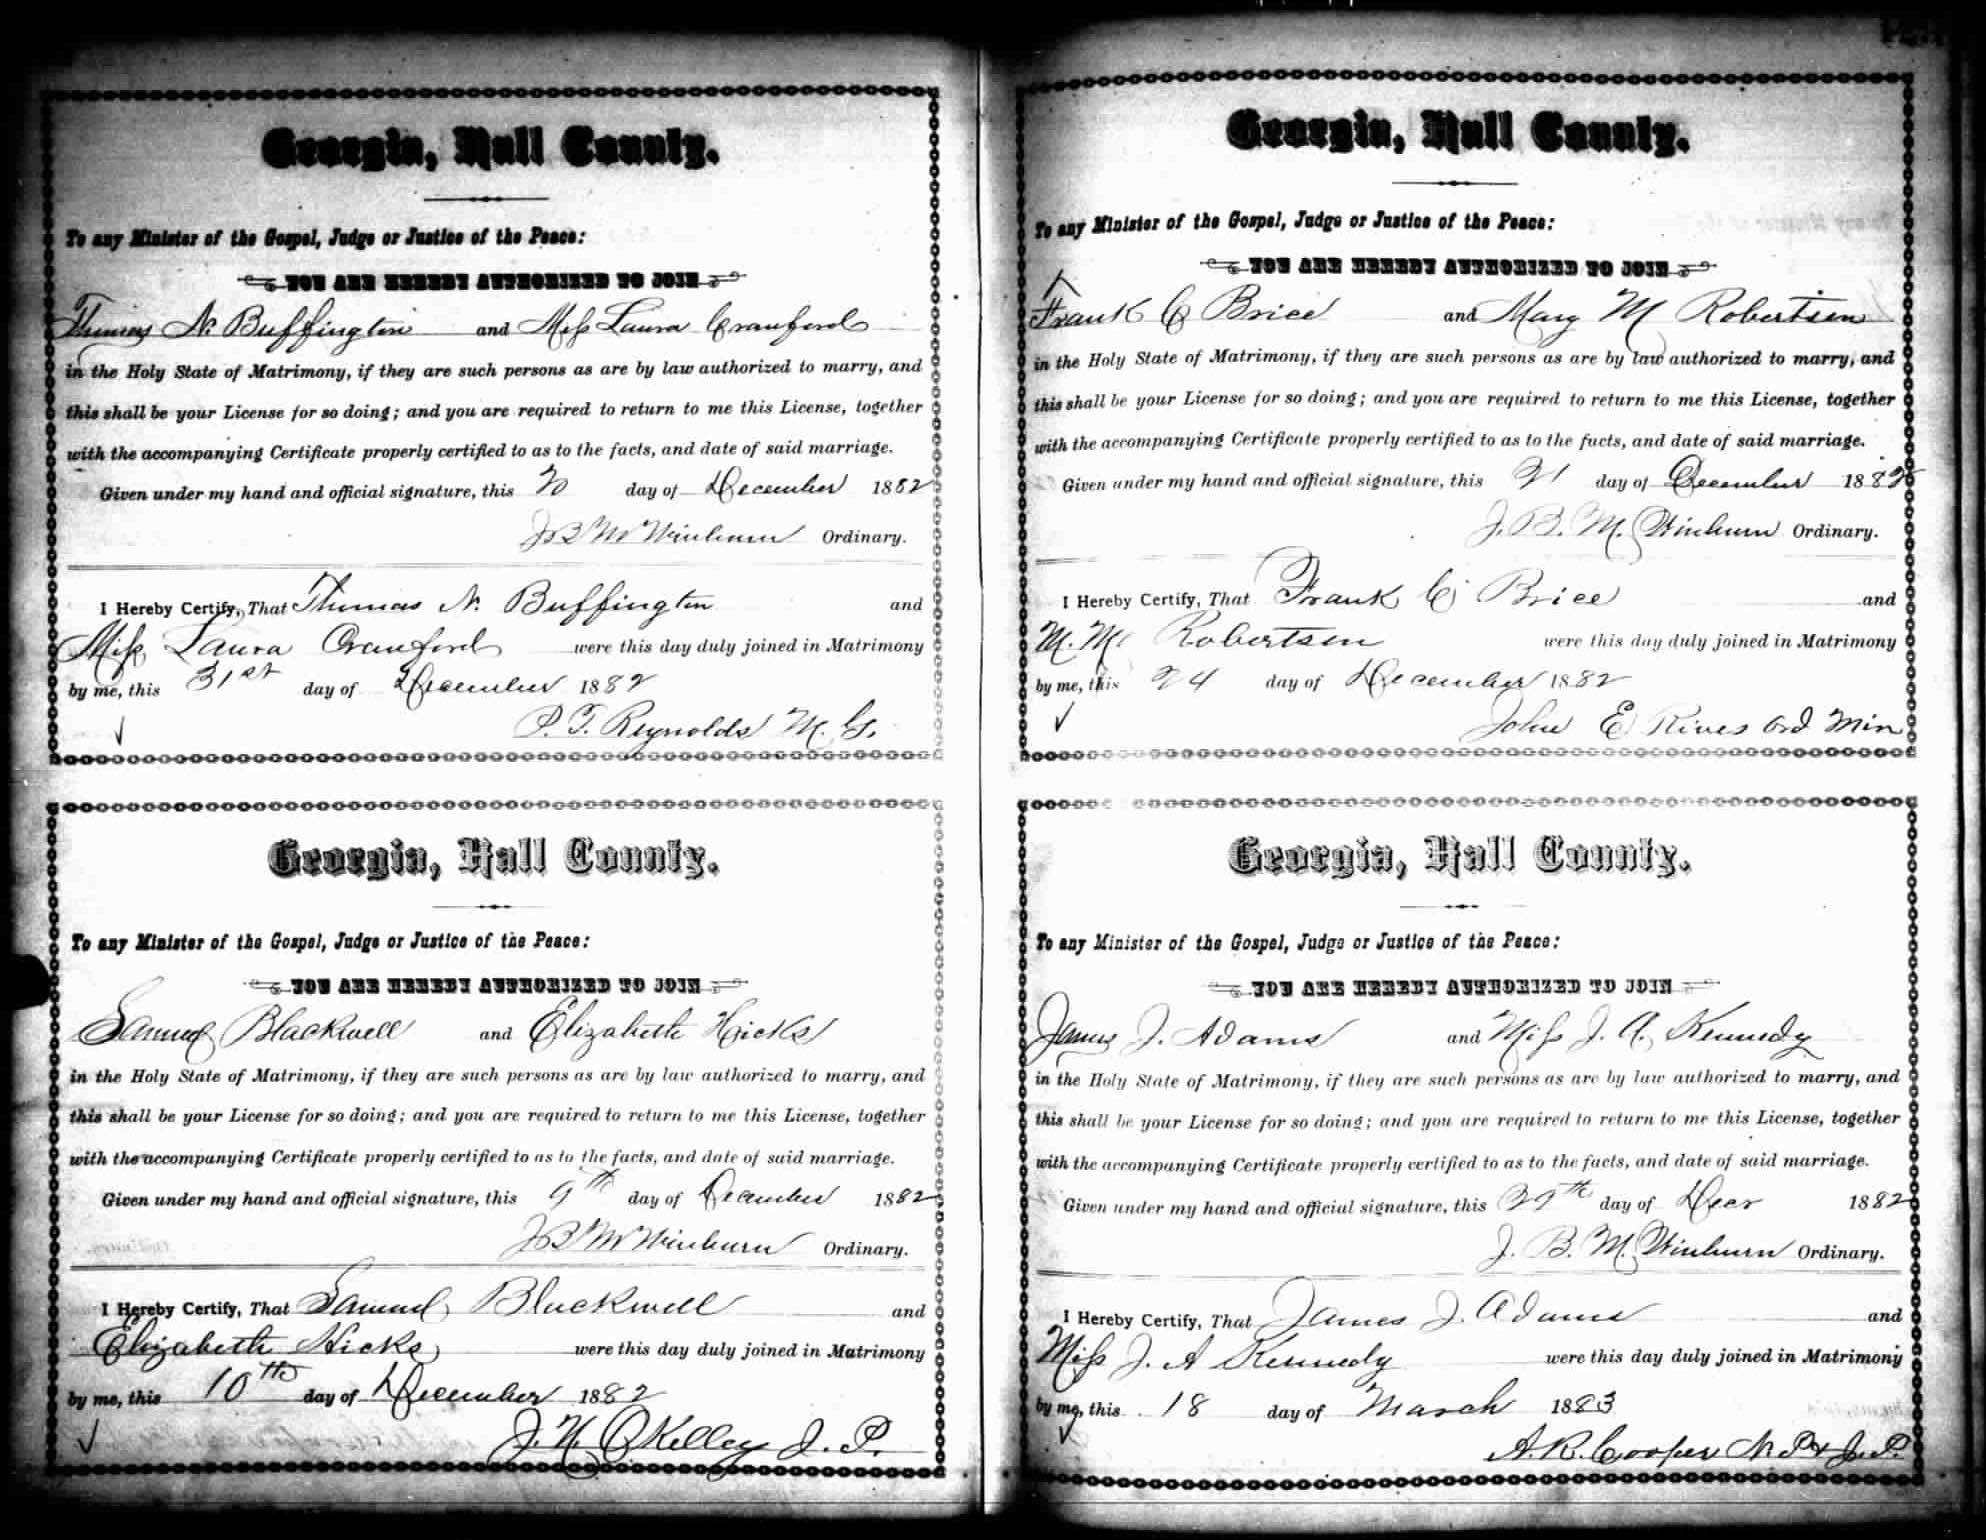 Georgia, Hall County.
To any Minister of the Gospel, Judge or Justice of the Peace:
YOU ARE HEREBY AUTHORIZED TO JOIN
Thomas N. Buffington and Miss Laura Crawford
in the Holy State of Matrimony, if they are such persons as are by law authorized to marry, and
this shall be your License for so doing; and you are required to return to me this License, together
with the accompanying Certificate properly certified to as to the facts, and date of said marriage.
Given under my hand and official signature, this 20 day of December 1882
J B M Winburn Ordinary.
I Hereby Certify, That Thomas N. Buffington and
Miss Laura Crawford were this day duly joined in Matrimony
by me, this 31st day of December 1882
P. T. Reynolds M. G.
Georgia, Hall County.
To any Minister of the Gospel, Judge or Justice of the Peace:
YOU ARE HEREBY AUTHORIZED TO JOIN
Samuel Blackwell and Elizabeth Hicks
in the Holy State of Matrimony, if they are such persons as are by law authorized to marry, and
this shall be your License for so doing; and you are required to return to me this License, together
with the accompanying Certificate properly certified to as to the facts, and date of said marriage.
Given under my hand and official signature, this 9th day of December 1882
J B M Winburn Ordinary.
I Hereby Certify, That Samuel Blackwell and
Elizabeth Hicks were this day duly joined in Matrimony
by me, this 10th day of December 1882
J. N. OKelley J. P.
Georgia, Hall County.
To any Minister of the Gospel, Judge or Justice of the Peace:
YOU ARE HEREBY AUTHORIZED TO JOIN
Frank C Brice and Mary M Robertson
in the Holy State of Matrimony, if they are such persons as are by law authorized to marry, and
this shall be your License for so doing; and you are required to return to me this License, together
with the accompanying Certificate properly certified to as to the facts, and date of said marriage.
Given under my hand and official signature, this 21 day of December 1882
J. B. M. Winburn Ordinary.
I Hereby Certify, That Frank C Brice and
M. M. Robertson were this day duly joined in Matrimony
by me, this 24 day of December 1882
John E Rives Ord Min
Georgia, Hall County.
To any Minister of the Gospel, Judge or Justice of the Peace:
YOU ARE HEREBY AUTHORIZED TO JOIN
James J. Adams and Miss J. A. Kennedy
in the Holy State of Matrimony, if they are such persons as are by law authorized to marry, and
this shall be your License for so doing; and you are required to return to me this License, together
with the accompanying Certificate properly certified to as to the facts, and date of said marriage.
Given under my hand and official signature, this 29th day of Decr 1882
J. B. M. Winburn Ordinary.
I Hereby Certify, That James J. Adams and
Miss J. A Kennedy were this day duly joined in Matrimony
by me, this 18 day of March 1883
A. R. Cooper N. P. & J. P.